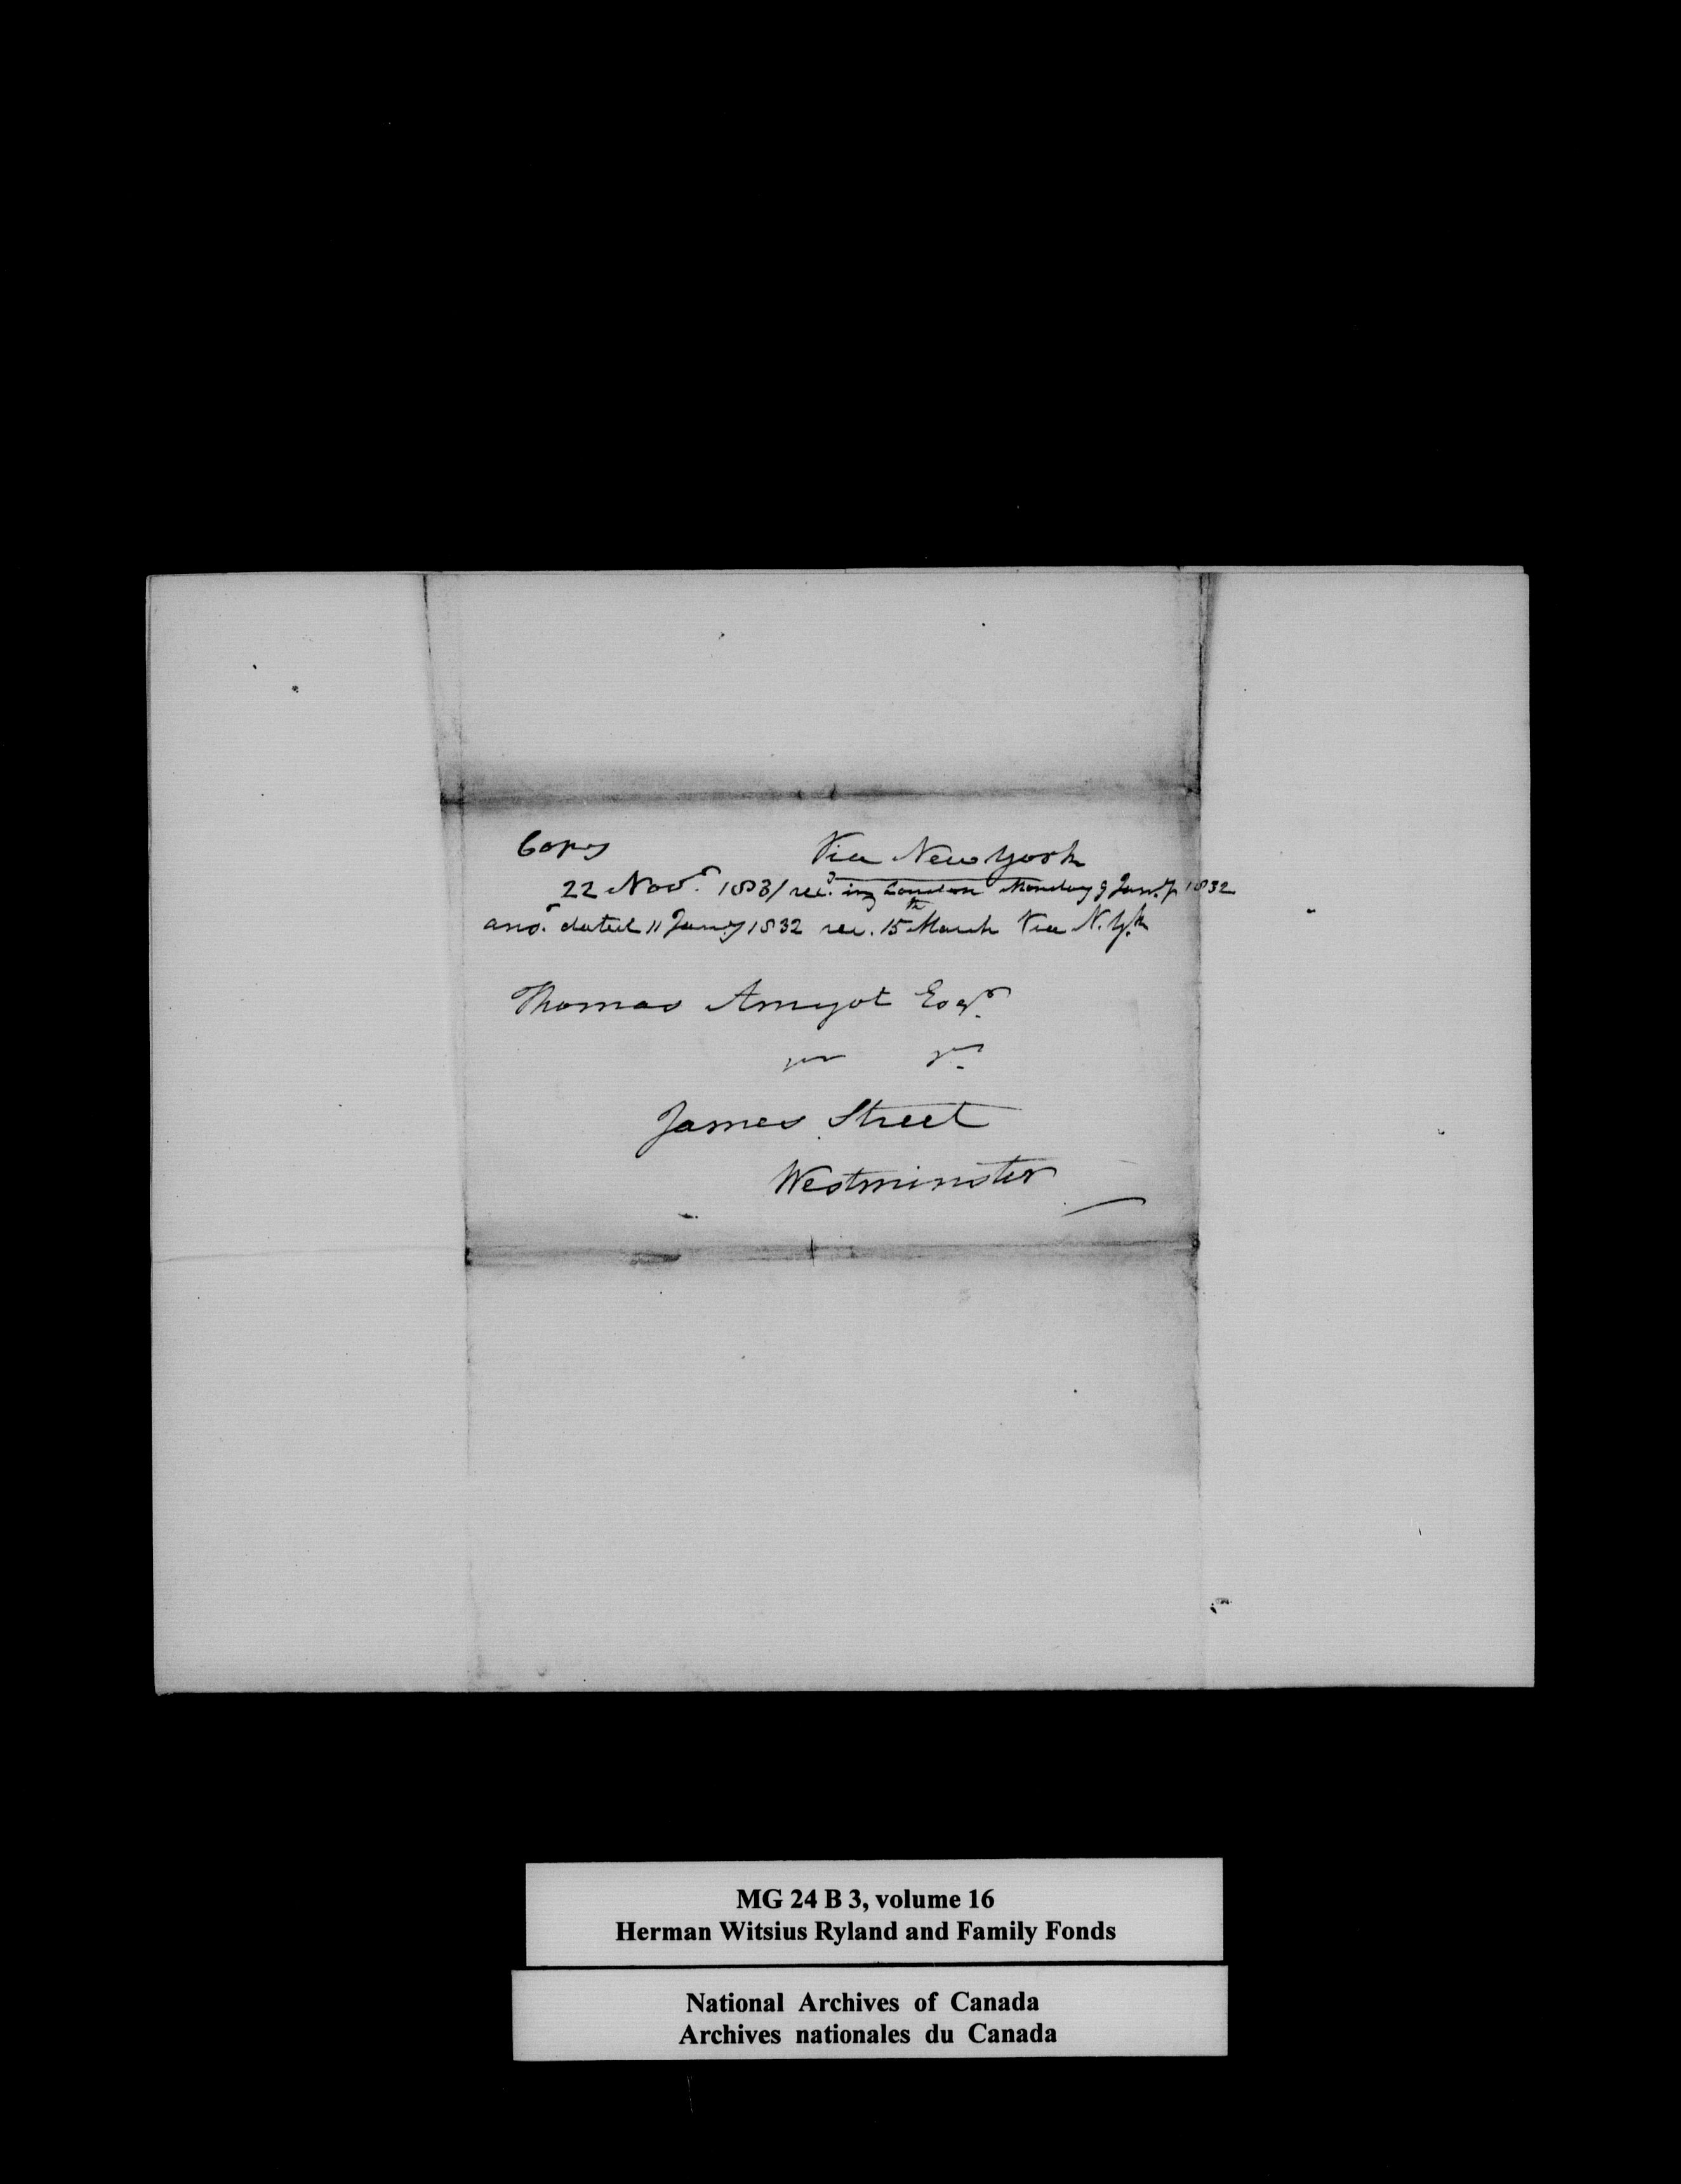 Copy Via New York
22 Novr. 1831 recd. in London Monday 9 Jany 1832
ansr. dated 11 Jany 1832 rec. 15th March Via N. Yk
Thomas Amyot Esqr.
James Street
Westminster
MG 24 B 3, volume 16
Herman Witsius Ryland and Family Fonds
National Archives of Canada
Archives nationales du Canada